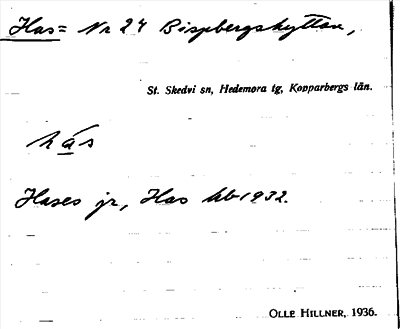 Has= Nr 24 Bispbergshyttan,
St. Skedvi sn, Hedemora tg, Kopparbergs län.
hás
Hases jr, Has hb 1932.
OLLE HILLNER, 1936.